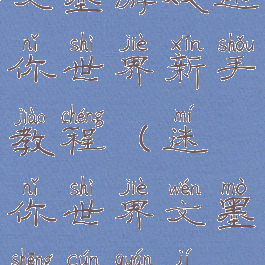 nǐ shì jiè xīn shǒu
你世界新手
jiào chéng mí
教程(迷
nǐ shì jiè wén mò
你世界文墨
shēng cún quán jí